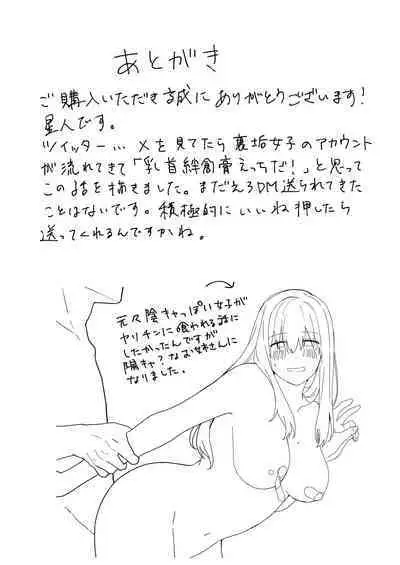 あとがき
ご購入いただき誠にありがとうございます!
星人です。
ツイッター…Xを見てたら裏垢女子のアカウント
が流れてきて「乳首絆創膏えっちだ!」と思って
この話を描きました。まだえろDM送られてきた
ことはないです。積極的にいいね押したら
送ってくれるんですかね。
元々陰キャっぽい女子が
ヤリチンに喰われる話に
したかったんですが
陽キャ?なお姉さんに
なりました。